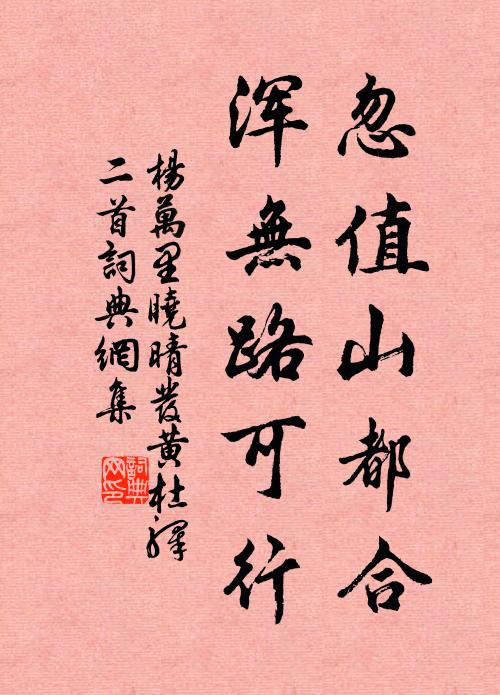 忽值山都合
浑無路可行
楊萬里曉晴發黄杜驛
二首詞典網集
詞典网印